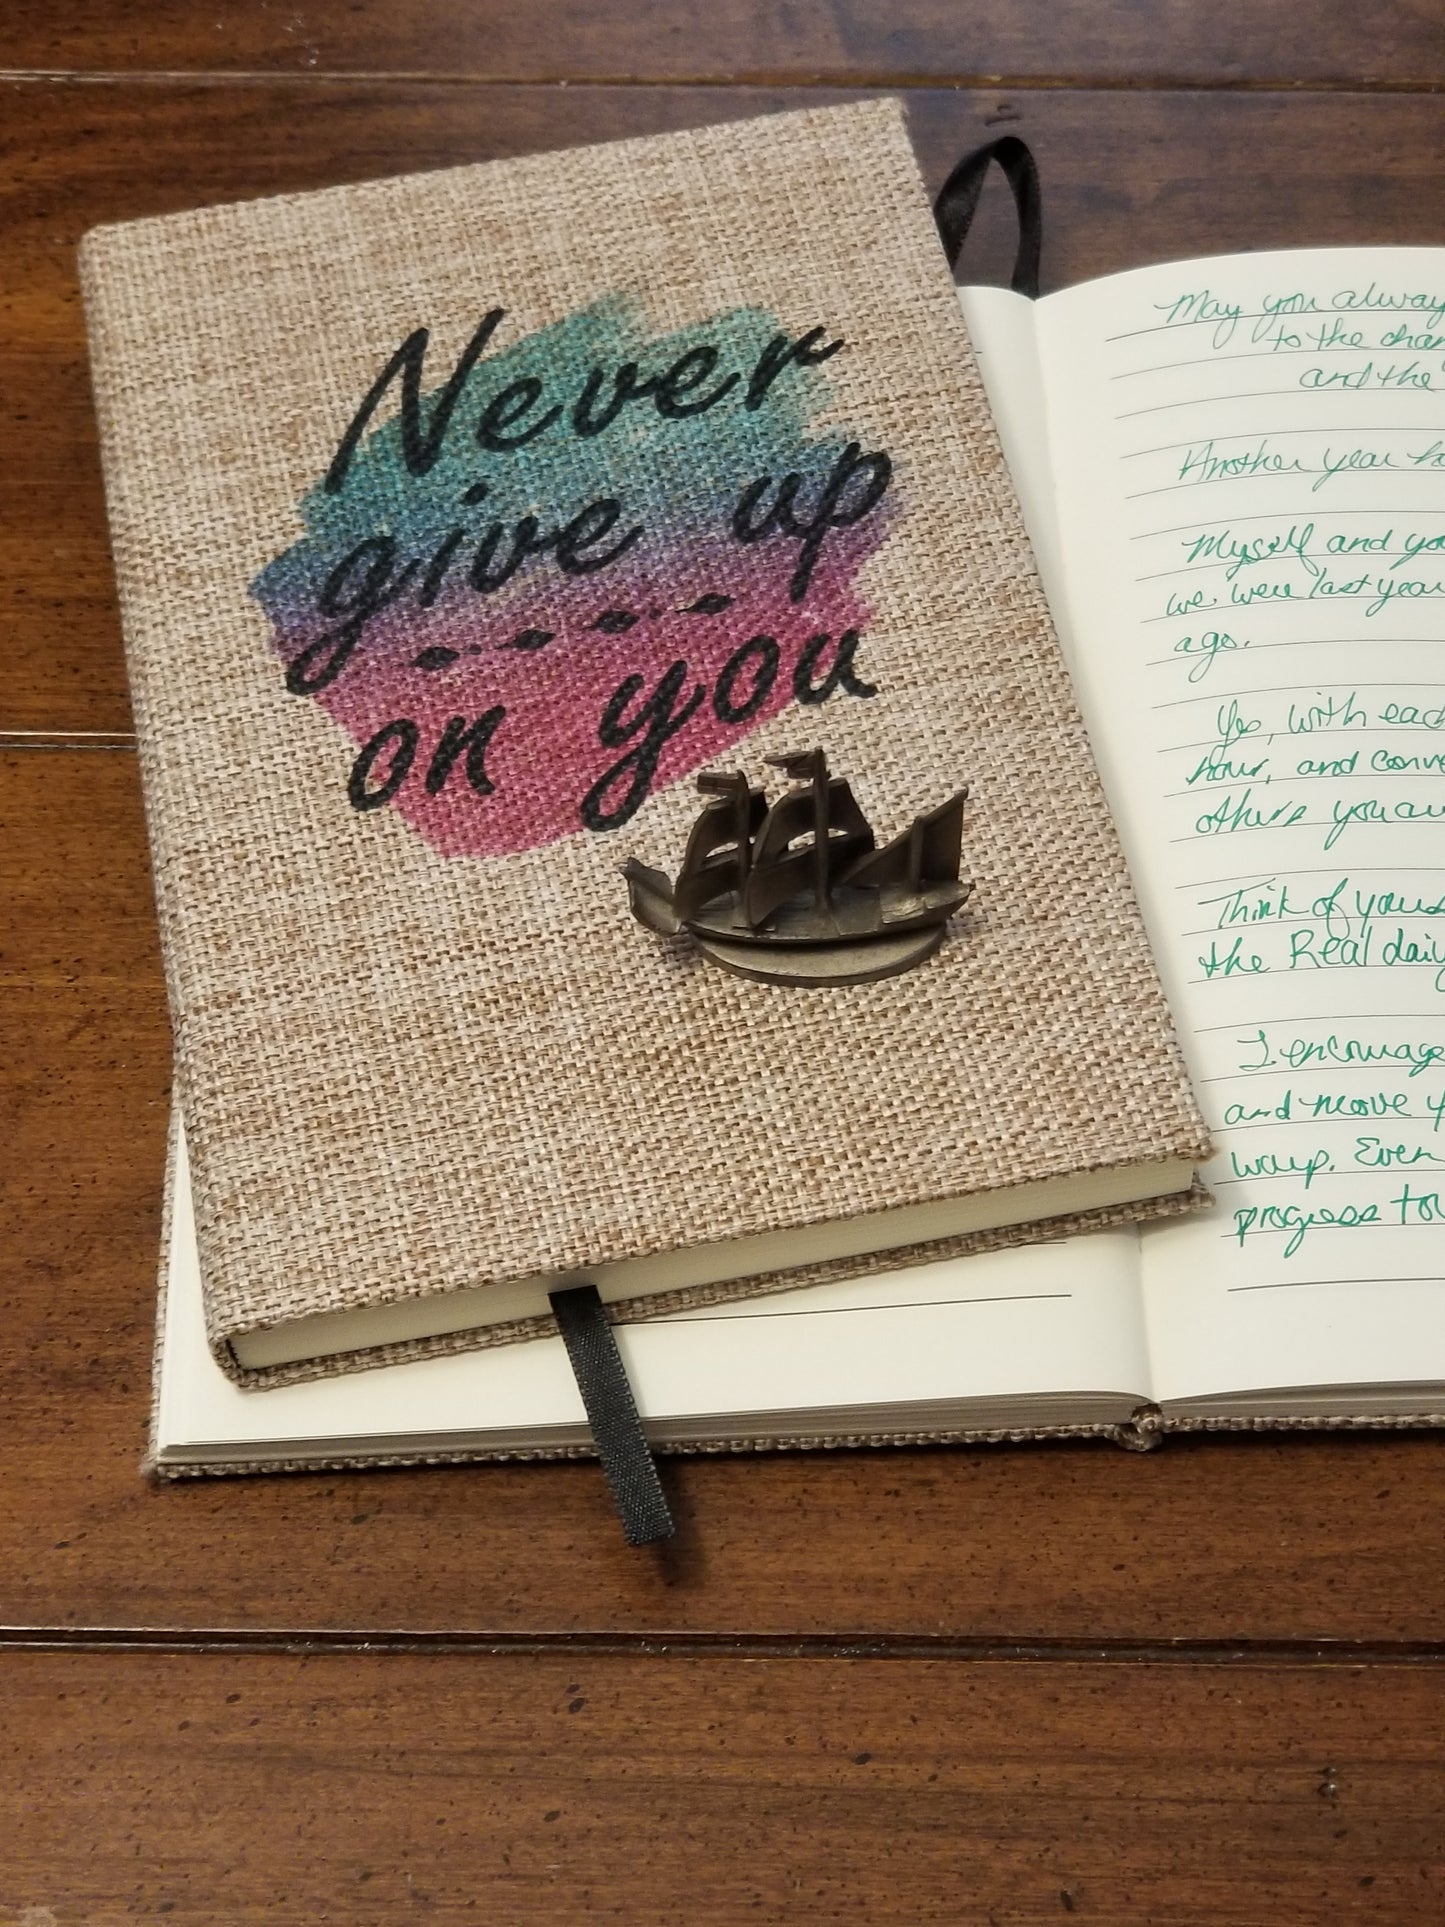 Never
give up
on you
May you alway
to the char
and the
Another year h
Myself and yo
we were last year
ago.
Yes, with eac
hour, and conve
others you au
Think of yours
the Real daily
I encourage
and move y
way. Even
progress to